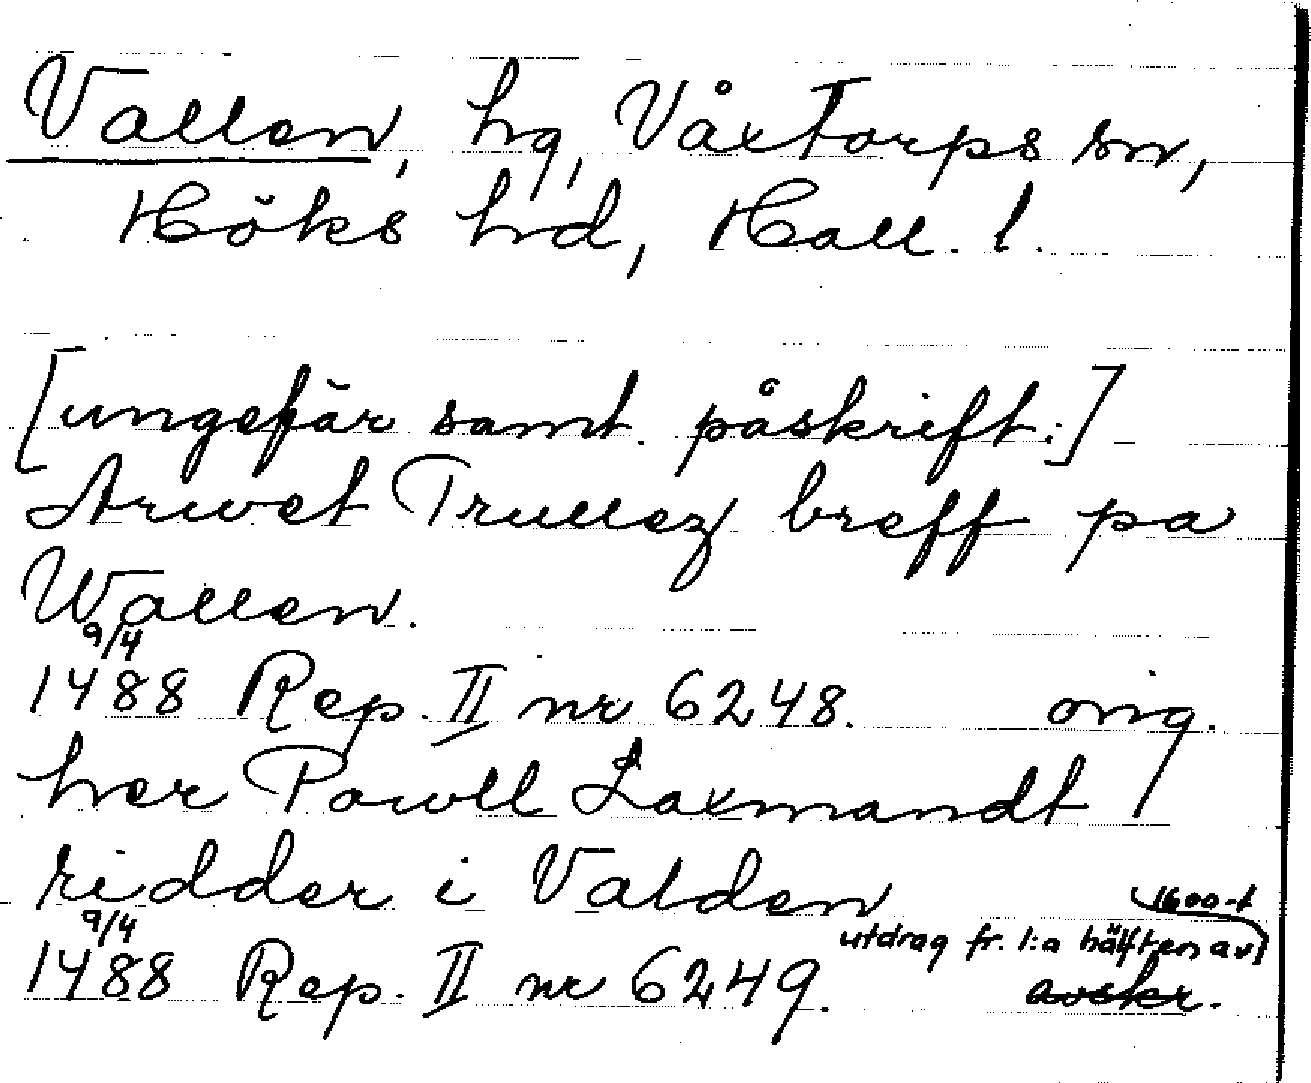 Vallen, hg, Våxtorps sn,
Höks hd, Hall. l.
[ungefär samt. påskrift:]
Arwet Trullez breff pa
Wallen.
9/4
1488 Rep. II nr 6248. orig.
her Powll Laxmandt /
ridder i Valden
9/4
1600-t
utdrag fr. 1:a hälften av
1488 Rep. II nr 6249. avskr.